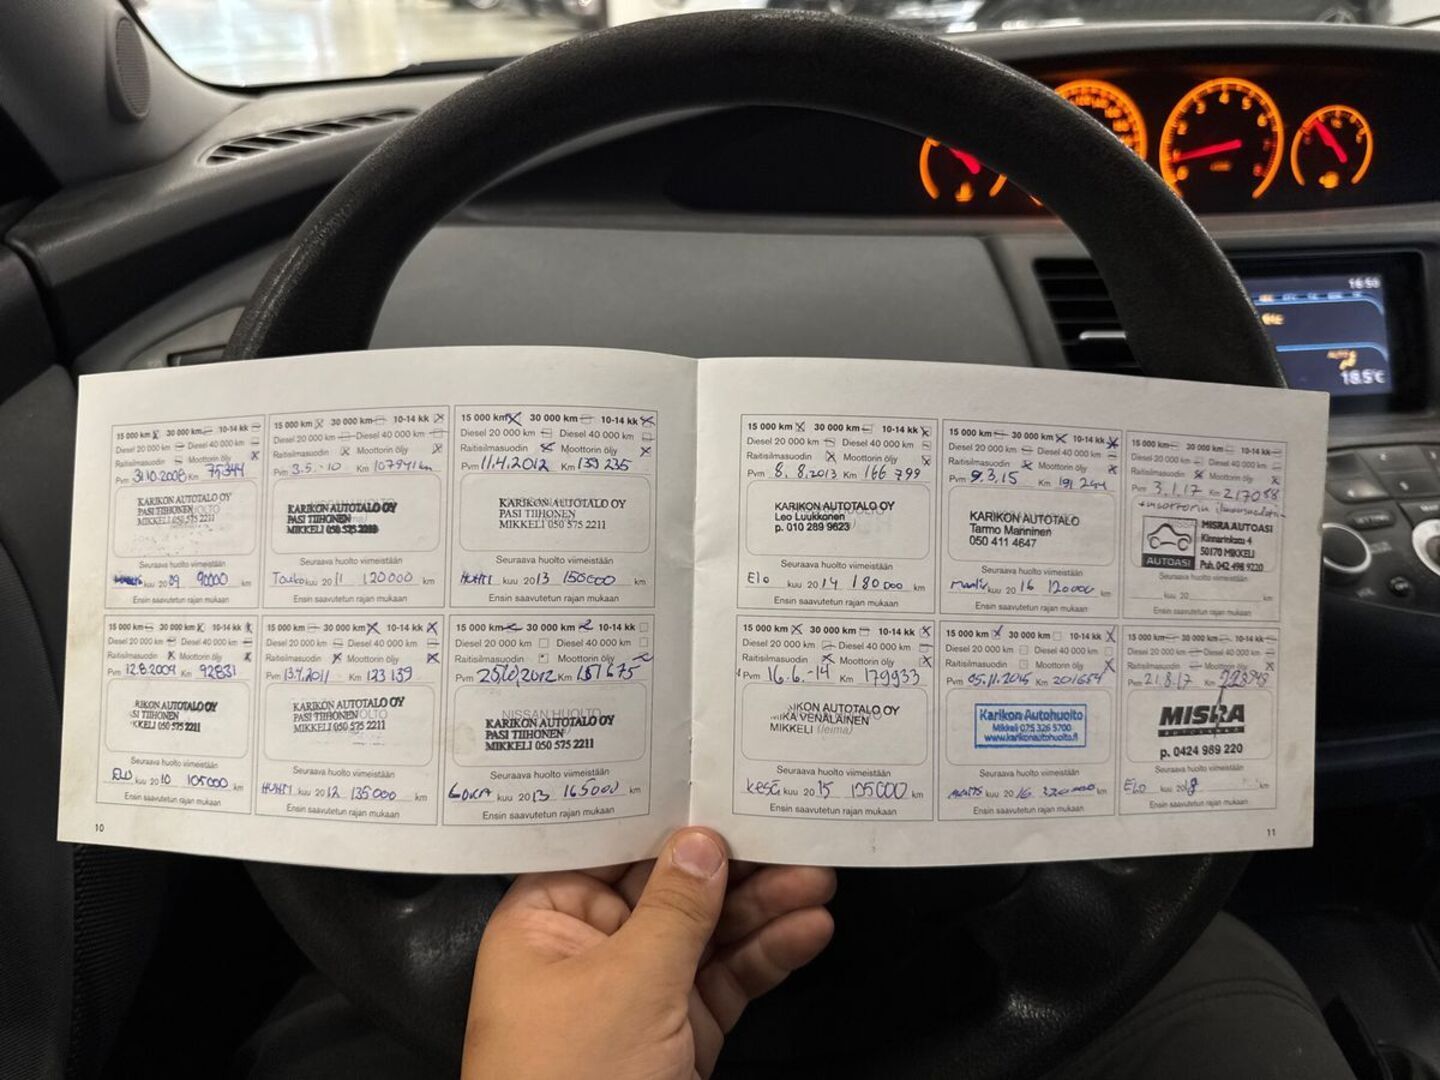 15 000 km 30 000 km 10-14 kk
Diesel 20 000 km Diesel 40 000 km
Raitisilmasuodin Moottorin öljy
Pvm 31.10.2008 Km 75344
KARIKON AUTOTALO OY
PASI TIIHONEN
MIKKELI 050 575 2211
Seuraava huolto viimeistään
kuu 2009 90000 km
Ensin saavutetun rajan mukaan
15 000 km 30 000 km 10-14 kk
Diesel 20 000 km Diesel 40 000 km
Raitisilmasuodin Moottorin öljy
Pvm 3.5.-10 Km 107941 km
KARIKON AUTOTALO OY
PASI TIIHONEN
MIKKELI 050 575 2211
Seuraava huolto viimeistään
Touko kuu 2011 120000 km
Ensin saavutetun rajan mukaan
15 000 km 30 000 km 10-14 kk
Diesel 20 000 km Diesel 40 000 km
Raitisilmasuodin Moottorin öljy
Pvm 11.4.2012 Km 139 235
KARIKON AUTOTALO OY
PASI TIIHONEN
MIKKELI 050 575 2211
Seuraava huolto viimeistään
HUHTI kuu 2013 150000 km
Ensin saavutetun rajan mukaan
15 000 km 30 000 km 10-14 kk
Diesel 20 000 km Diesel 40 000 km
Raitisilmasuodin Moottorin öljy
Pvm 12.8.2009 Km 92831
KARIKON AUTOTALO OY
SI TIIHONEN
KKELI 050 575 2211
Seuraava huolto viimeistään
Elo kuu 2010 105000 km
Ensin saavutetun rajan mukaan
15 000 km 30 000 km 10-14 kk
Diesel 20 000 km Diesel 40 000 km
Raitisilmasuodin Moottorin öljy
Pvm 13.4.2011 Km 123 139
KARIKON AUTOTALO OY
PASI TIIHONEN
MIKKELI 050 575 2211
Seuraava huolto viimeistään
HUHTI kuu 2012 135000 km
Ensin saavutetun rajan mukaan
15 000 km 30 000 km 10-14 kk
Diesel 20 000 km Diesel 40 000 km
Raitisilmasuodin Moottorin öljy
Pvm 25/10/2012 Km 157675
NISSAN HUOLTO
KARIKON AUTOTALO OY
PASI TIIHONEN
MIKKELI 050 575 2211
Seuraava huolto viimeistään
LOKA kuu 2013 165000 km
Ensin saavutetun rajan mukaan
10
15 000 km 30 000 km 10-14 kk
Diesel 20 000 km Diesel 40 000 km
Raitisilmasuodin Moottorin öljy
Pvm 8.8.2013 Km 166 799
KARIKON AUTOTALO OY
Leo Luukkonen
p. 010 289 9623
Seuraava huolto viimeistään
Elo kuu 2014 180 000 km
Ensin saavutetun rajan mukaan
15 000 km 30 000 km 10-14 kk
Diesel 20 000 km Diesel 40 000 km
Raitisilmasuodin Moottorin öljy
Pvm 9.3.15 Km 191 244
KARIKON AUTOTALO
Tarmo Manninen
050 411 4647
Seuraava huolto viimeistään
maalis kuu 2016 120000 km
Ensin saavutetun rajan mukaan
15 000 km 30 000 km 10-14 kk
Diesel 20 000 km Diesel 40 000 km
Raitisilmasuodin Moottorin öljy
Pvm 3.1.17 Km 217088
+ moottorin ilmansuodatin
AUTOASI
MISRA AUTOASI
Kinnarinkatu 4
50170 MIKKELI
Puh. 042 498 9220
Seuraava huolto viimeistään
kuu 20 km
Ensin saavutetun rajan mukaan
15 000 km 30 000 km 10-14 kk
Diesel 20 000 km Diesel 40 000 km
Raitisilmasuodin Moottorin öljy
Pvm 16.6.-14 Km 179933
IKON AUTOTALO OY
MIKA VENÄLÄINEN
MIKKELI (leima)
Seuraava huolto viimeistään
KESÄ kuu 2015 195000 km
Ensin saavutetun rajan mukaan
15 000 km 30 000 km 10-14 kk
Diesel 20 000 km Diesel 40 000 km
Raitisilmasuodin Moottorin öljy
Pvm 05.11.2015 Km 201654
Karikon Autohuolto
Mikkeli 075 326 5700
www.karikonautohuolto.fi
Seuraava huolto viimeistään
kuu 2016 km
Ensin saavutetun rajan mukaan
15 000 km 30 000 km 10-14 kk
Diesel 20 000 km Diesel 40 000 km
Raitisilmasuodin Moottorin öljy
Pvm 21.8.17 Km
MISRA
p. 0424 989 220
Seuraava huolto viimeistään
Elo kuu 2018 km
Ensin saavutetun rajan mukaan
11
16:50
AUTO
18.5°C